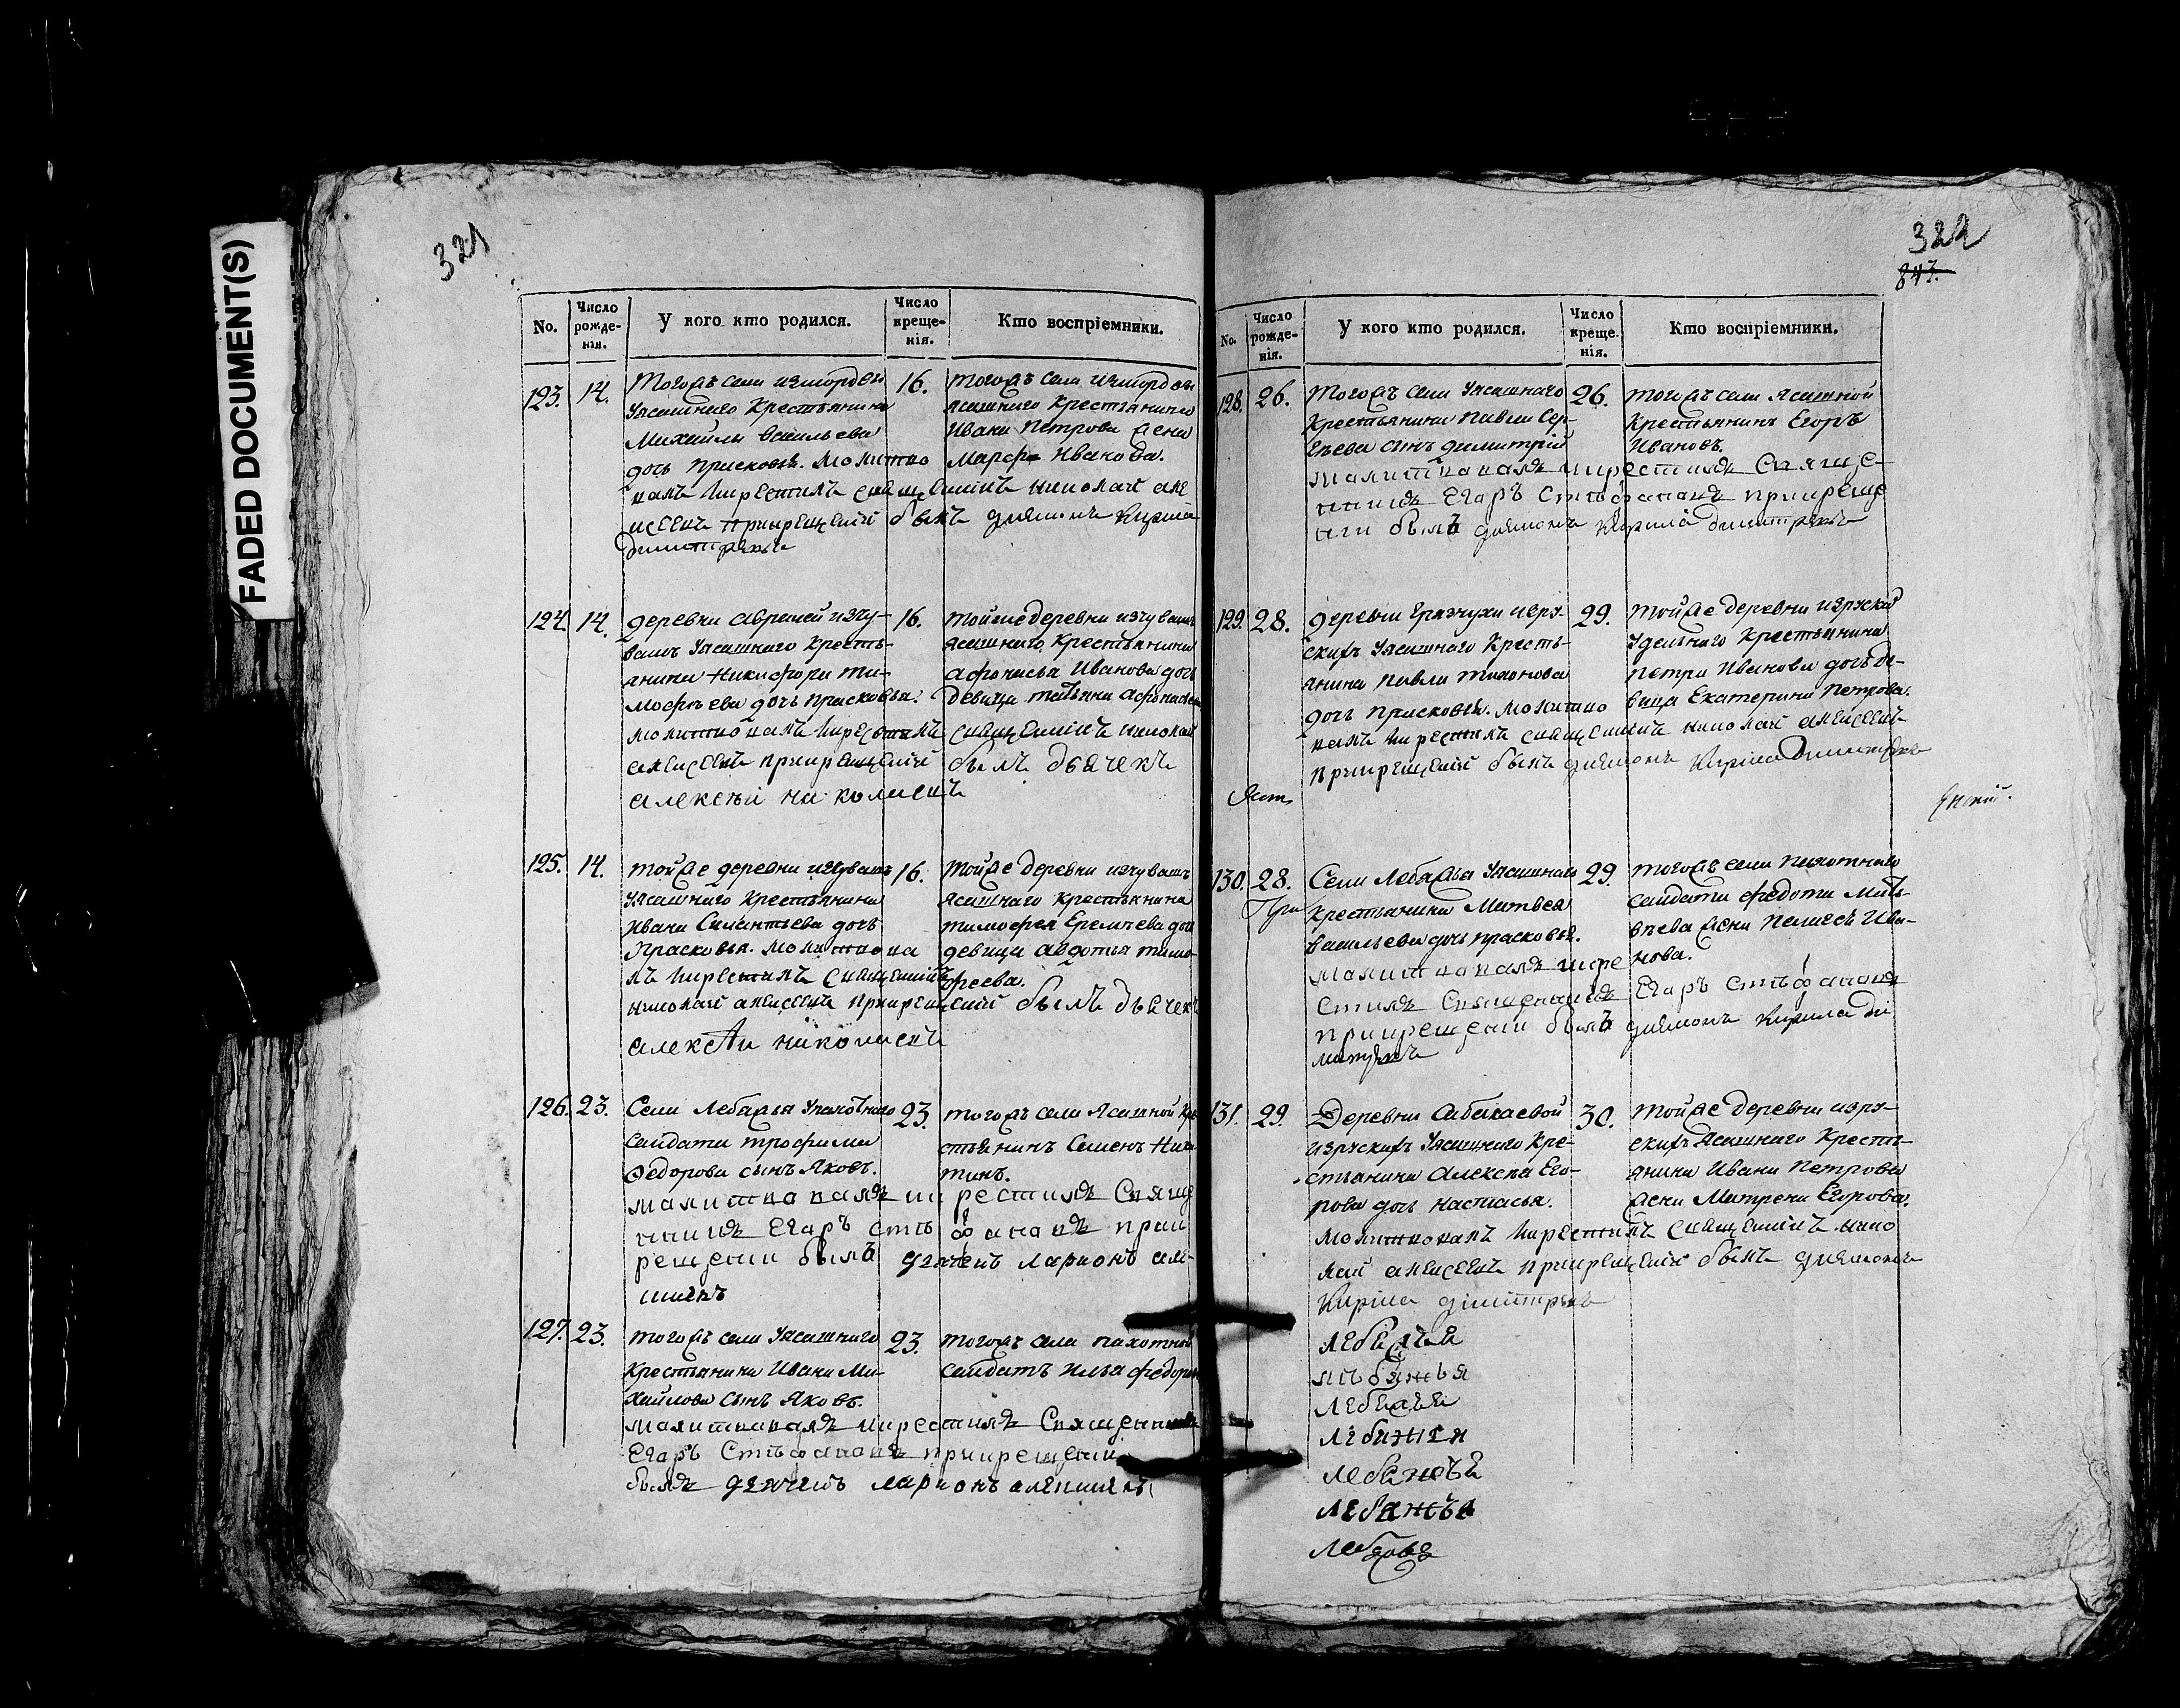 FADED DOCUMENT(S)
321
No.
Число рожде-нія.
У кого кто родился.
Число креще-нія.
Кто воспріемники.
123. 14.
Тогожъ села измордвы
Уясашнаго Крестьянина
Михайлы Васильева
дочь Прасковья. Молитво
валъ икрестилъ священникъ николай але
ксеевъ прикрещеніи былъ диаконъ Кирила
Димитриевъ
16.
тогожъ села измордвы
ясашнаго Крестьянина
Ивана Петрова жена
Марфа Иванова.
124. 14.
деревни авралей изчу-
вашъ Уясашнаго Кресть-
янина Никифора Ти-
мофъева дочь Прасковья.
Молитвовалъ икрестилъ священникъ николай
алексеевъ прикрещеніи былъ дьячекъ
алексъй николаевъ
16.
тойже деревни изчувашъ
ясашнаго Крестьянина
афонасья Иванова дочь
девица татьяна афонасьева
125. 14.
тойже деревни изчувашъ
Уясашнаго Крестьянина
Ивана Силантьева дочь
Прасковья. Молитвова
лъ икрестилъ священникъ
николай алексеевъ прикрещеніи былъ дьячекъ
алексъи николаевъ
16.
тойже деревни изчувашъ
ясашнаго Крестьянина
тимофея Еремъева дочь
девица авдотья тимо-
феева.
126. 23.
Села Лебажья Упахотнаго
салдата трофима
Федорова сынъ Яковъ.
малитвавалъ икрестилъ Священ
никъ Егаръ стъфанавъ прик
рещении былъ дьячекъ ларионъ але-
шинъ
23.
тогожъ села Ясашной кре
стьянинъ Семенъ Ники
тинъ.
127. 23.
тогожъ села Уясашнаго
Крестьянина Ивана Ми-
хайлова сынъ Яковъ.
малитвавалъ икрестилъ Священникъ
Егаръ Стъфанавъ прикрещении
былъ дьячекъ ларионъ алешинъ
23.
тогожъ села пахотной
салдатъ Илья федоровъ
322
843.
No.
Число рожде-нія.
У кого кто родился.
Число креще-нія.
Кто воспріемники.
128. 26.
Тогожъ села Уясашнаго
Крестьянина Павла Сер-
гъева сынъ Димитрій
малитвавалъ икрестилъ Священ
никъ Егаръ Стъфанавъ прикреще
нии былъ диаконъ Кирила димитриевъ
26.
тогожъ села Ясашной
Крестьянинъ Егоръ
Ивановъ.
129. 28.
деревни Грязнухи изру-
скихъ Уясашнаго Кресть-
янина Павла тихонова
дочь Прасковья. Молитво
валъ икрестилъ священникъ николай алексеевъ
прикрещеніи былъ диаконъ Кирила Димитриевъ
29.
тойже деревни изруских
Удельнаго Крестьянина
Петра Иванова дочь де-
вица Екатерина Петрова.
130. 28.
Села Лебажья Уясашнаго
Крестьянина Матвея
Васильева дочь прасковья.
малитвавалъ икре
стилъ Священникъ Егаръ стъфанавъ
прикрещении былъ диаконъ Кирила ди
митриевъ
29.
тогожъ села Пахотнаго
салдата федота Мат-
въева жена Пелагея Ива-
нова.
131. 29.
Деревни Абакаевой
изрускихъ Уясашнаго Кре-
стьянина Алексъа Его-
рова дочь Настасья.
Молитвовалъ икрестилъ священникъ нико
лай алексеевъ прикрещеніи былъ диаконъ
Кирила димитриевъ
30.
тойже деревни изру-
скихъ Ясашнаго Кресть-
янина Ивана Петрова
жена Матрена Егорова.
лебажья
лъбажья
лебажья
лебажья
лебажъя
лебажъя